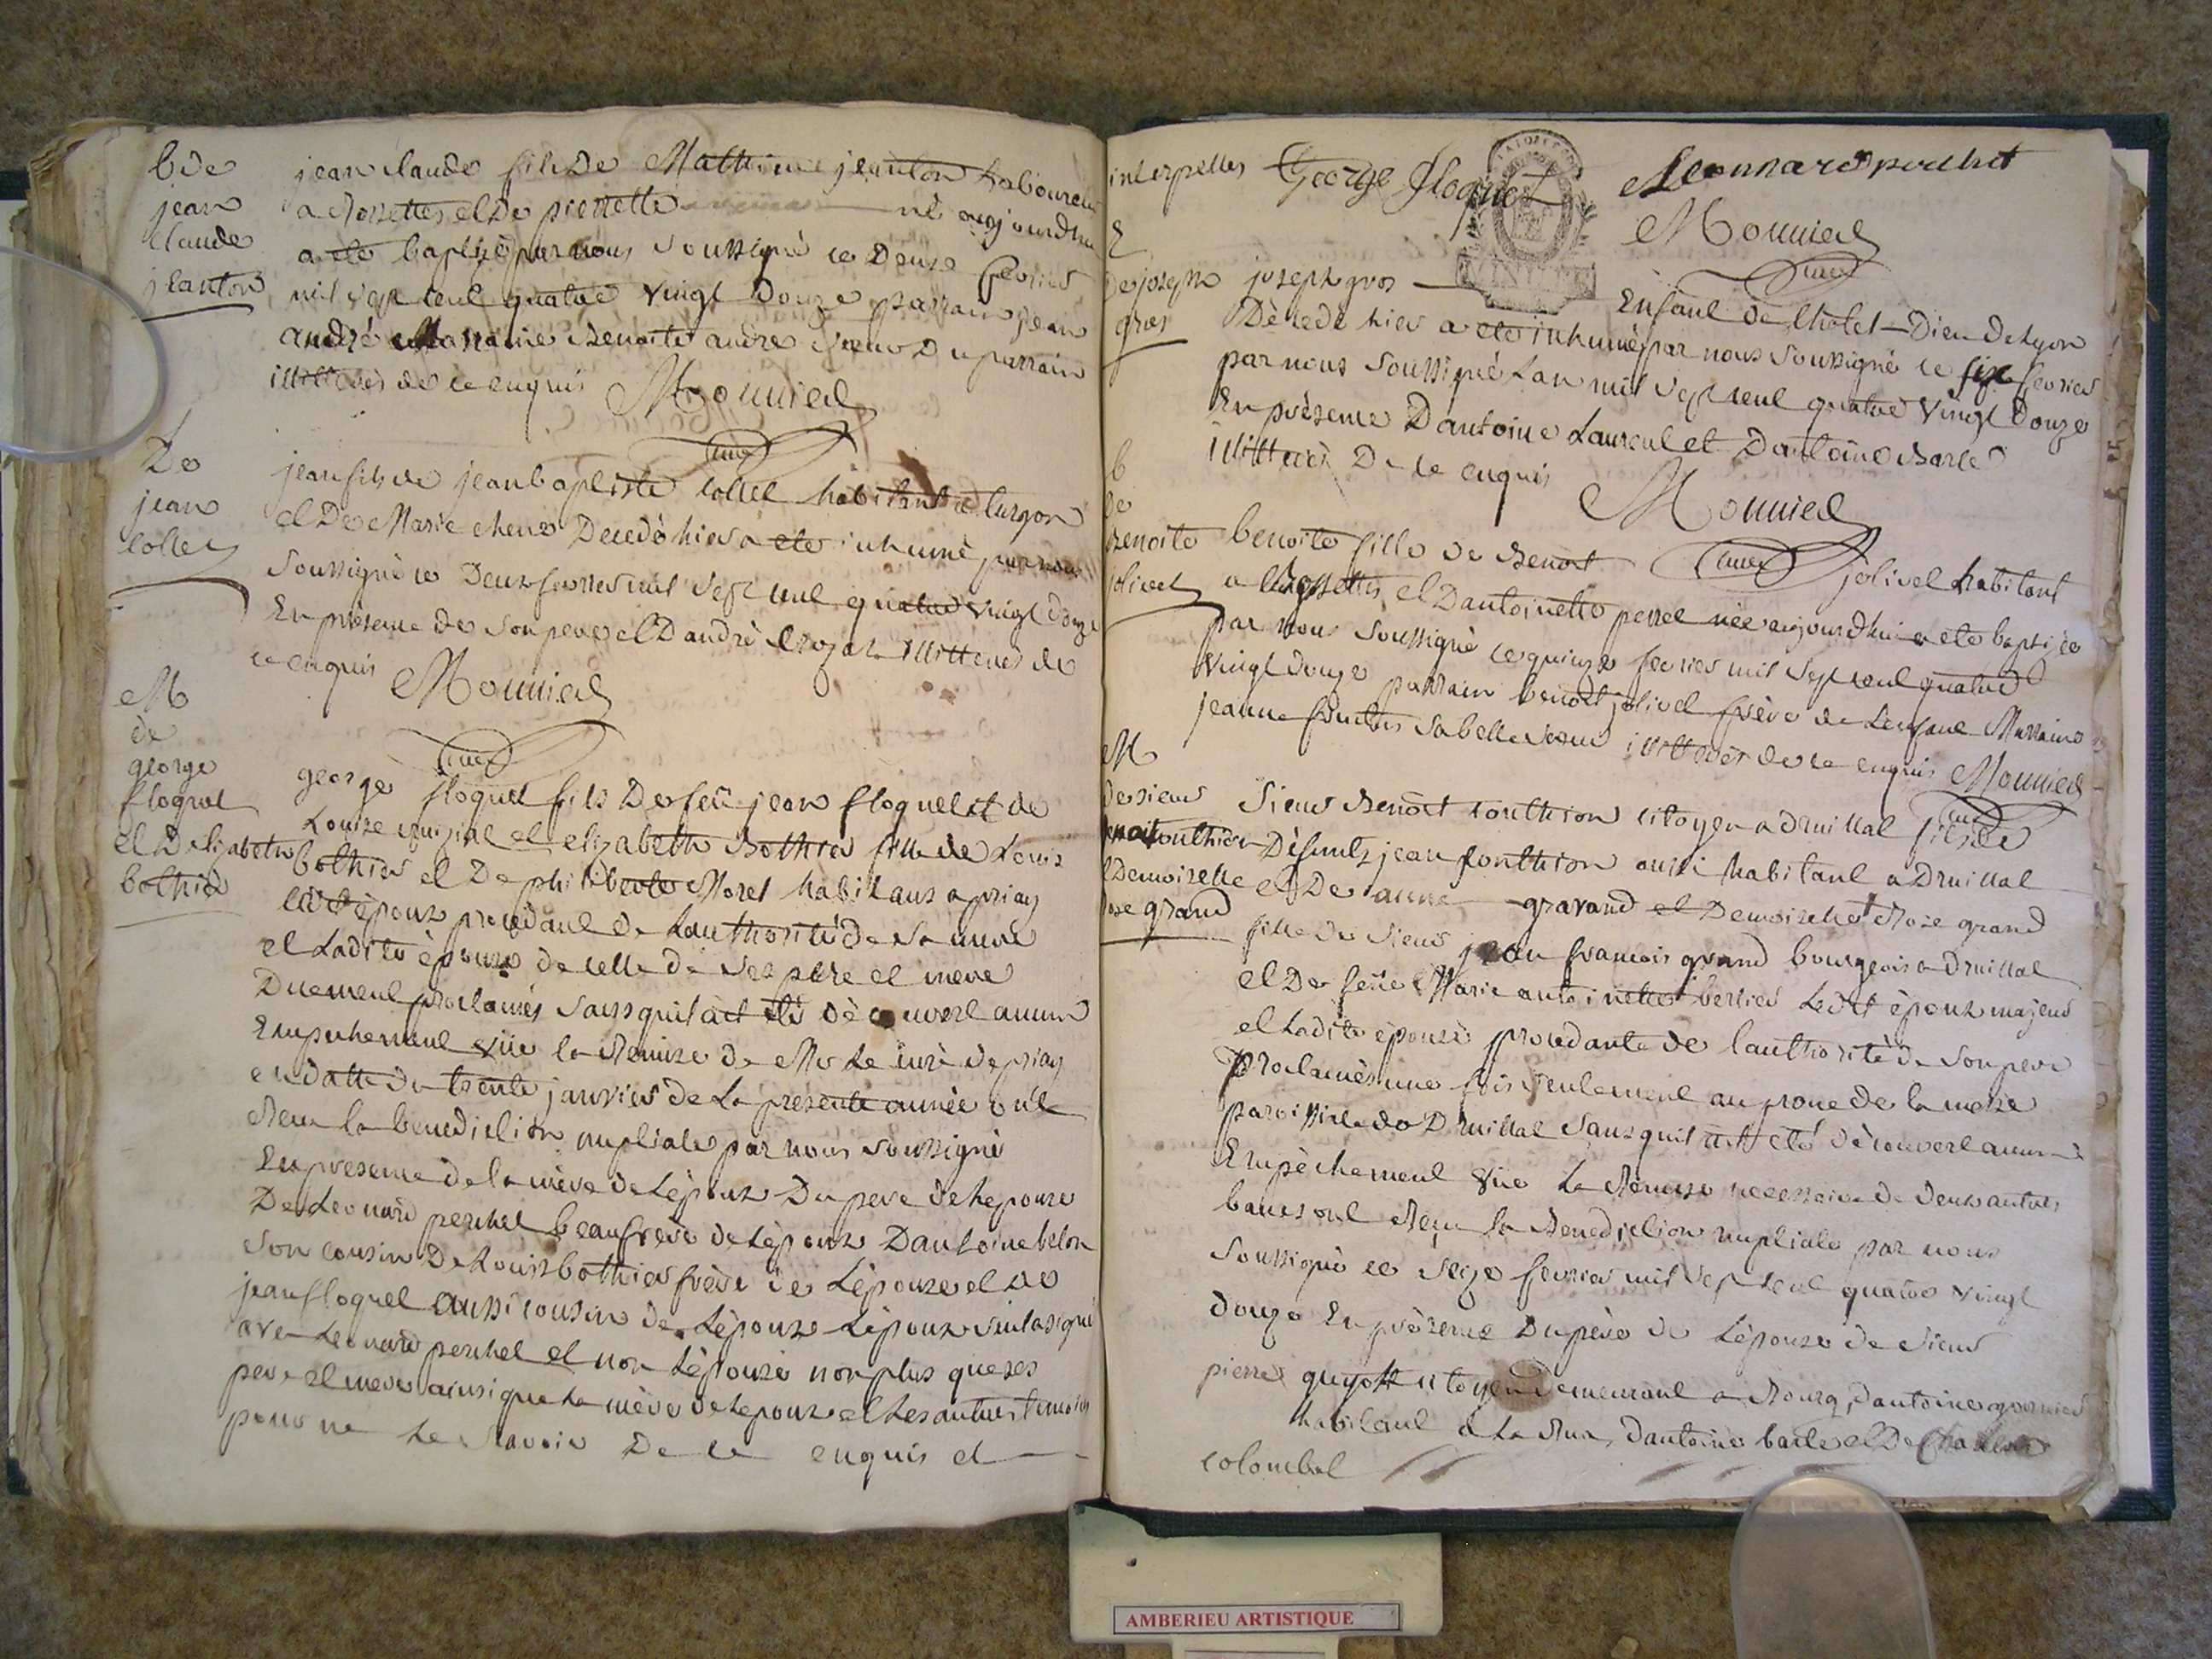 b de
jean
Claude
jeanton
jean claude fils de Mathieu jeanton laboureur
a rossettes et de pierrette né aujourdhui
a eté baptisé par nous soussigné ce douze fevrier
mil sept cent quatre vingt douze parrain jean
andré Marraine Benoite andre soeur du parrain
illitterés de ce enquis Monnier
curé
De
jean
collet
jean fils de jean baptiste collet habitant a turgon
et De Marie chene Decedé hier a eté inhumé par nous
Soussigné ce Deux fevrier mil sept cent quatre vingt douze
En présence de Son pere et D'andrè illitterés de
ce enquis Monnier
curé
M
de
george
floquet
et D'elizabeth
bothier
george floquet fils De feu jean floquet et de
Louise et elizabeth Bothier fille de Louis
bothier et De philiberte Morel habitans a priay
ledit époux procédant de Lauthorité de sa mere
et Ladite épouze de celle de ses pere et mere
Duement proclamés sans quil ait été dècouvert aucun
Empechement vüe la Remise de Mr Le curé de priay
en datte du trente janvier de La présente année ont
Reçu la benediction nuptiale par nous soussigné
En presence de la mère de Lépoux Du pere de Lepouze
De Leonard perchet beaufrère de Lépoux D'antoine belon
son cousin De Louis bothier frère de Lépouze et de
jean floquet aussi cousin de Lépoux Lépoux signé
avec Leonard perchet et non Lépouze non plus que ses
pere et mere ainsi que la mère de Lepoux et les autres temoins
pour ne Le Savoir De ce enquis et
interpelles George floquet Leonnard perchet
Monnier
curé
E
de joseph
gros
joseph gros Enfant de Lhotel-Dieu de Lyon
Dècedé hier a eté inhumé par nous soussigné ce six fevrier
par nous soussigné L'an mil sept cent quatre vingt douze
En présence D'antoine Laurent et D'antoine Barle
illitterés De ce enquis Monnier
curé
b
de
Benoite
jolivet
benoite fille de Benoit jolivet habitant
a Rossettes et D'antoinette perret née aujourdhui a eté baptizée
par nous Soussigné ce quinze fevrier mil sept cent quatre
vingt douze parrain benoit jolivet frère de Lenfant Marraine
jeanne sa belle soeur illitterés de ce enquis Monnier
curé
M
de sieur
benoit conthion
et Demoizelle
Roze grand
Sieur Benoit conthion citoyen a Druillat fils de
Défunts jean conthion aussi habitant a Druillat
et De anne gravand et Demoizelle Roze grand
fille de Sieur jean francois grand bourgeois a Druillat
et De feüe Marie antoinette bertier Ledit époux majeur
et Ladite épouze procedante de lauthorité de son pere
proclamés une fois seulement au prone de la messe
paroissiale de Druillat sans quil ait eté découvert aucun
Empèchement vüe La Remise necessaire de deux autres
bancs ont Reçu la Benediction nuptiale par nous
soussigné ce seize fevrier mil sept cent quatre vingt
douze En présence Du père de Lépouze de sieur
pierre guyot citoyen demeurant a Bourg, d'antoine
habitant a La Rua, D'antoine barle et De
colombel
AMBERIEU ARTISTIQUE